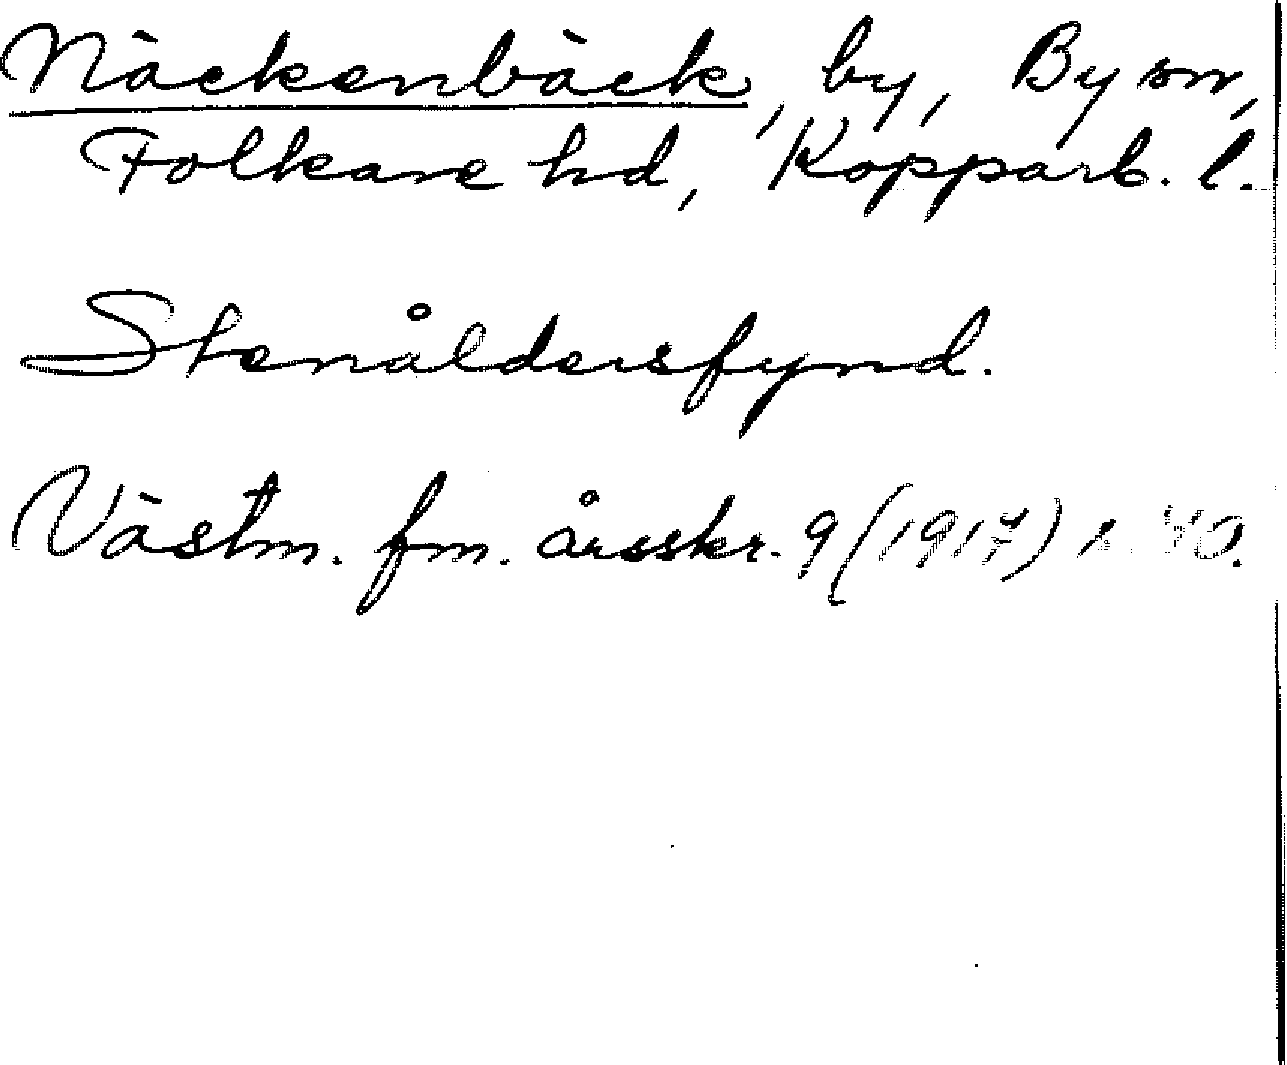 Näckenbäck, by, By sn,
Folkare hd, Kopparb. l.
Stenåldersfynd.
Västm. fm. årsskr. 9 (1917) s.